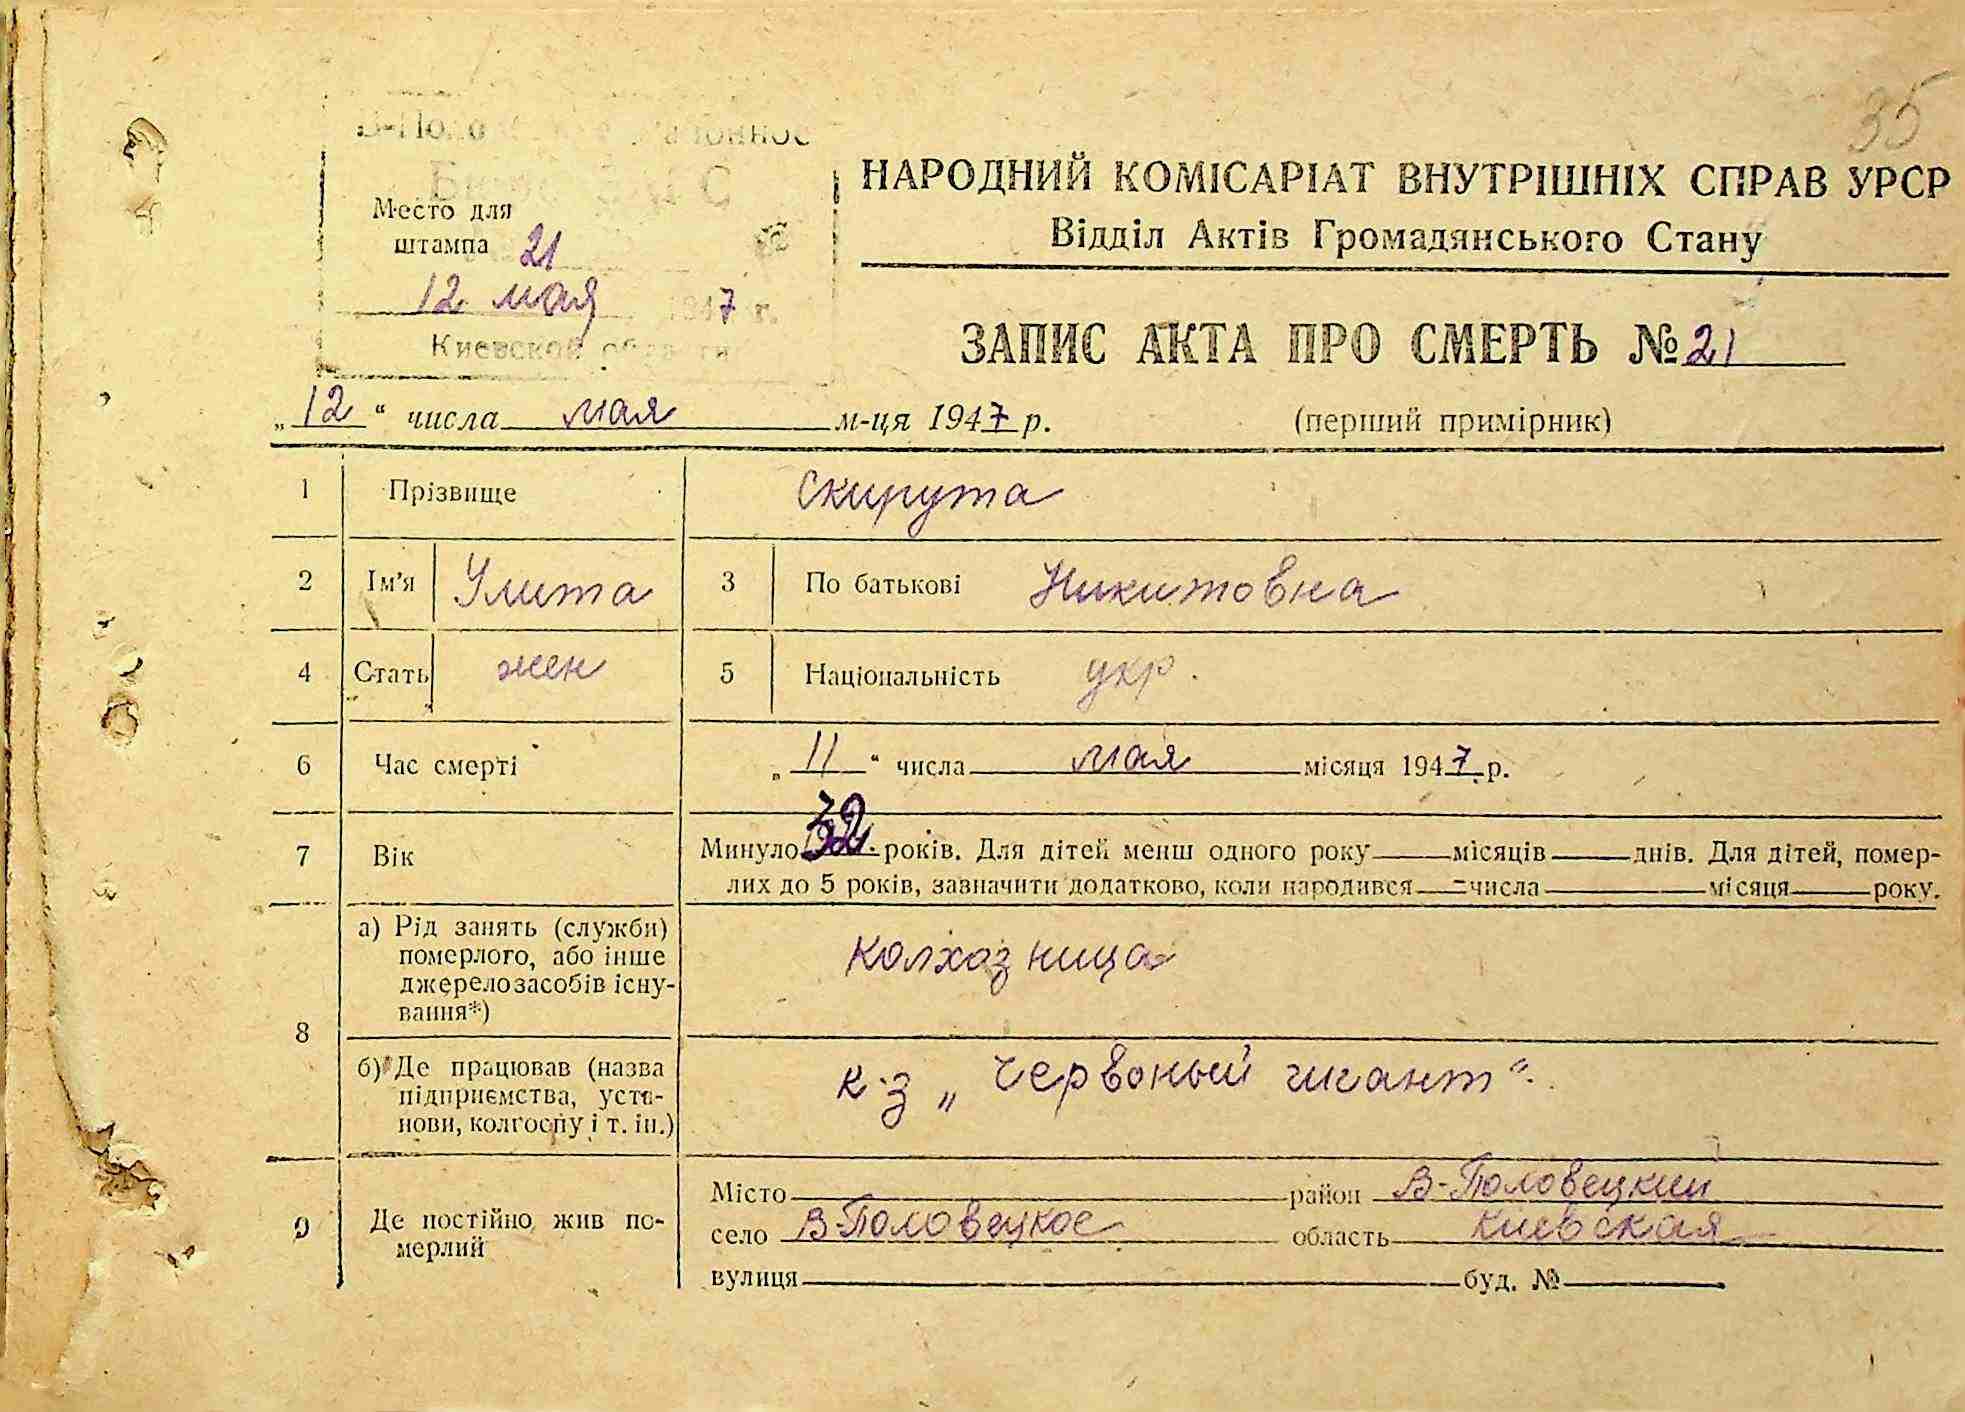 35
НАРОДНИЙ КОМІСАРІАТ ВНУТРІШНІХ СПРАВ УРСР
Відділ Актів Громадянського Стану
Место для
штампа 21
12 мая 1947 г.
Киевской области
ЗАПИС АКТА ПРО СМЕРТЬ № 21
„12“ числа мая м-ця 1947 р. (перший примірник)
1 Прізвище Скирута
2 Ім'я Улита 3 По батькові Никитовна
4 Стать жен 5 Національність укр.
6 Час смерті „11“ числа мая місяця 1947 р.
7 Вік Минуло 32 років. Для дітей менш одного року — місяців — днів. Для дітей, помер-
лих до 5 років, зазначити додатково, коли народився — числа — місяця — року.
8 а) Рід занять (служби)
померлого, або інше
джерело засобів існу-
вання*)
колхозница
б) Де працював (назва
підприємства, уста-
нови, колгоспу і т. ін.)
к-з „Червоный гигант“
9 Де постійно жив по-
мерлий
Місто район В-Половецкий
село В-Половецкое область Киевская
вулиця буд. №